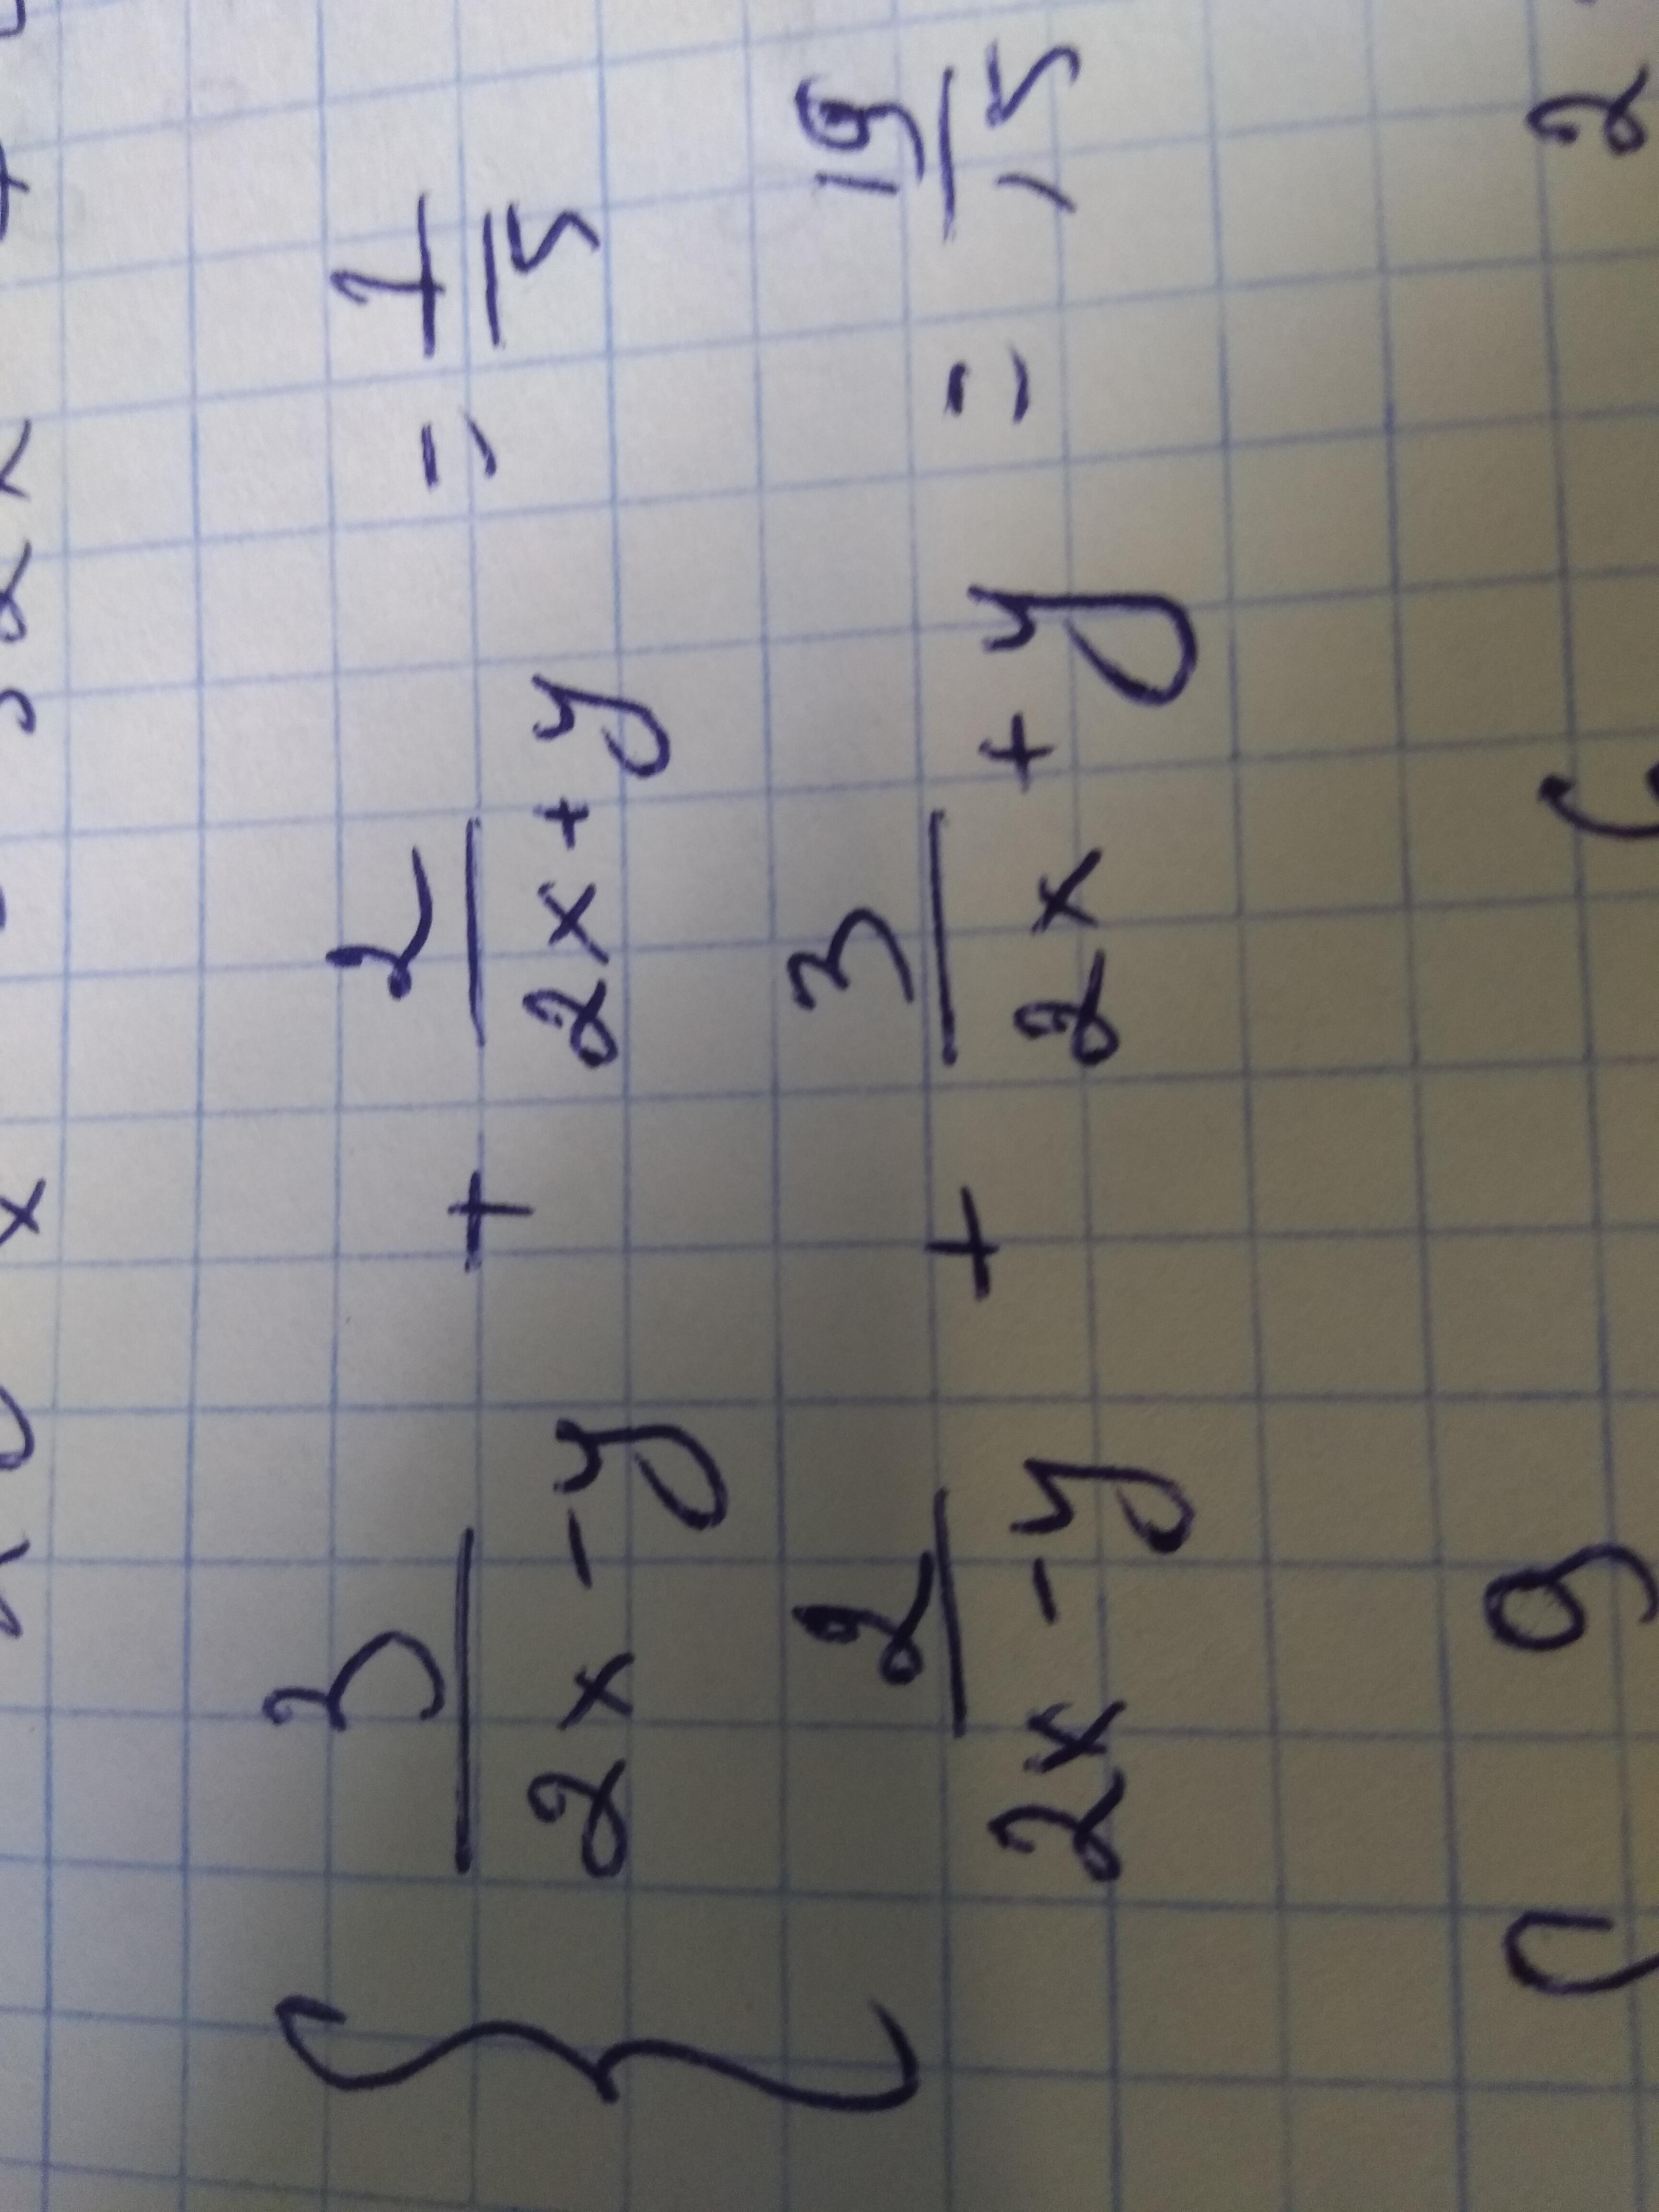 { 3/(2x-y) + 2/(2x+y) = 7/5
2/(2x-y) + 3/(2x+y) = 19/15